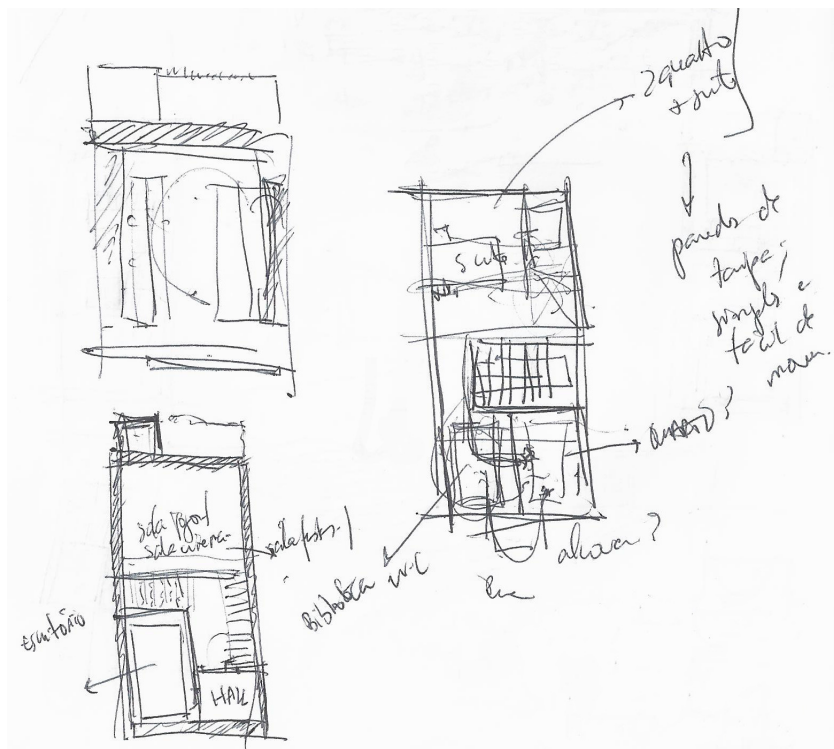 2 quartos
+ suite
paredes de
taipa;
simples e
fácil de
mover.
Suite
QUARTO?
alcova?
Biblioteca W.C
sala jogos/
sala cinema
sala festas
escritório
HALL